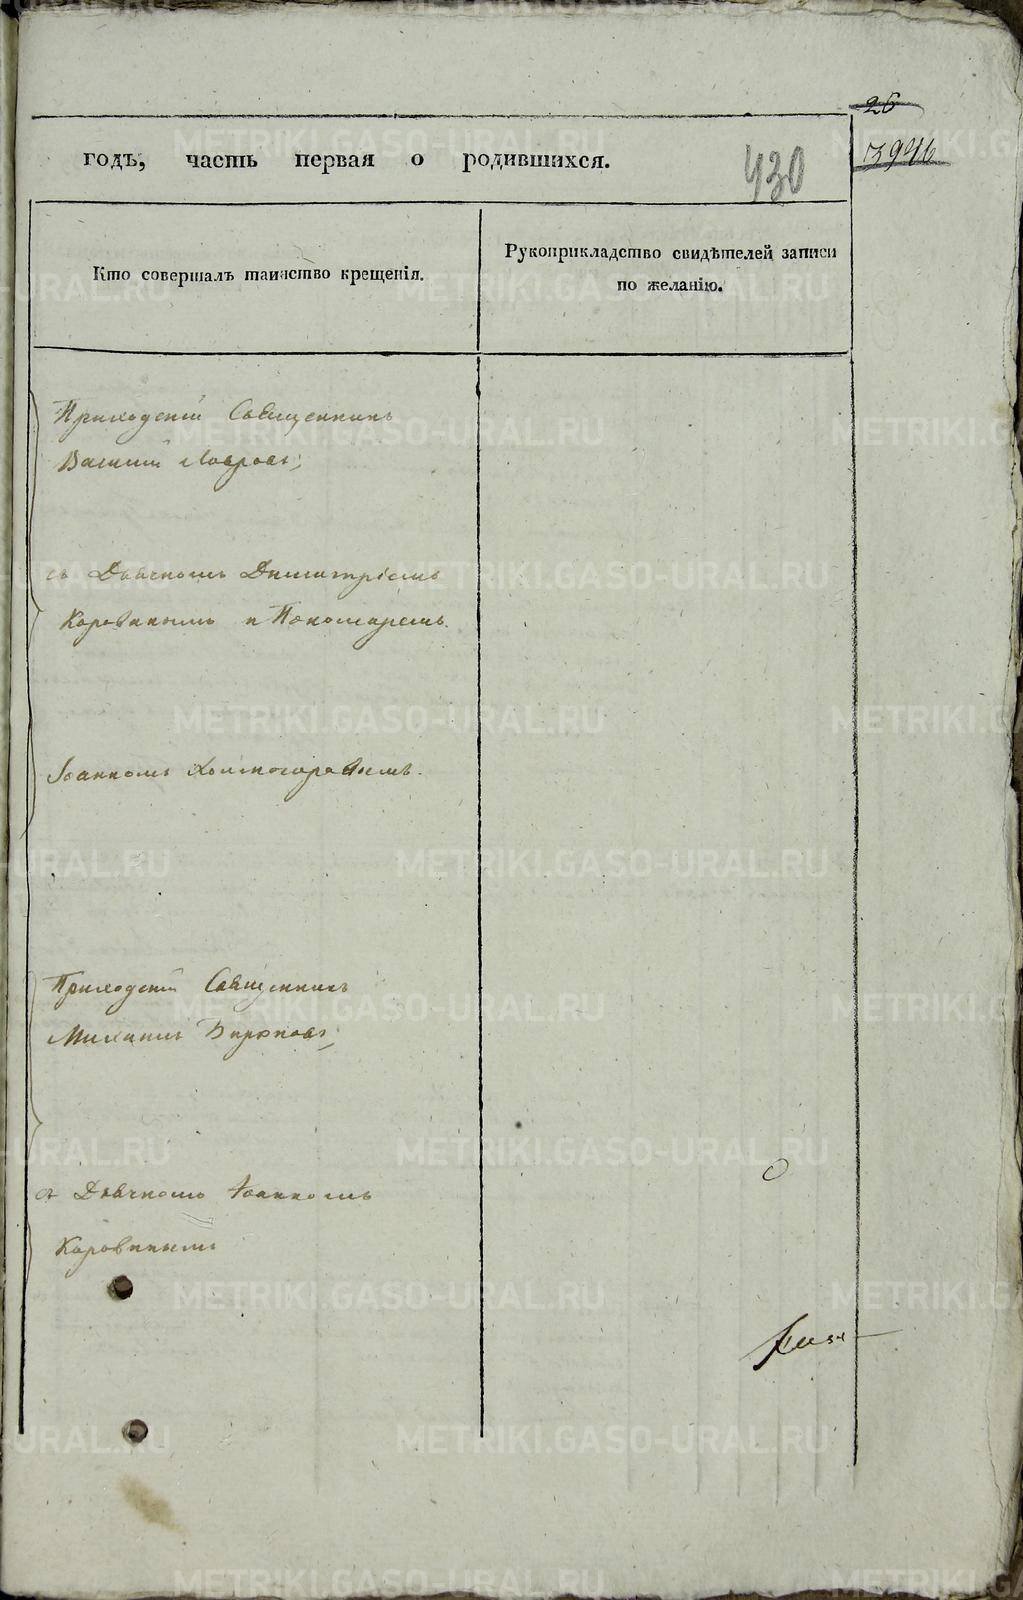 26
3946
годъ, часть первая о родившихся.
430
Кто совершалъ таинство крещенія.
Рукоприкладство свидѣтелей записи
по желанію.
Приходскій Священникъ
Василий Лавровъ;
съ Дьячкомъ Димитріемъ
Коровинымъ и Пономаремъ
Іоанномъ Холмогоровымъ.
Приходскій Священникъ
Михаилъ Бирюковъ;
съ Дьячкомъ Іоанномъ
Коровинымъ
METRIKI.GASO-URAL.RU